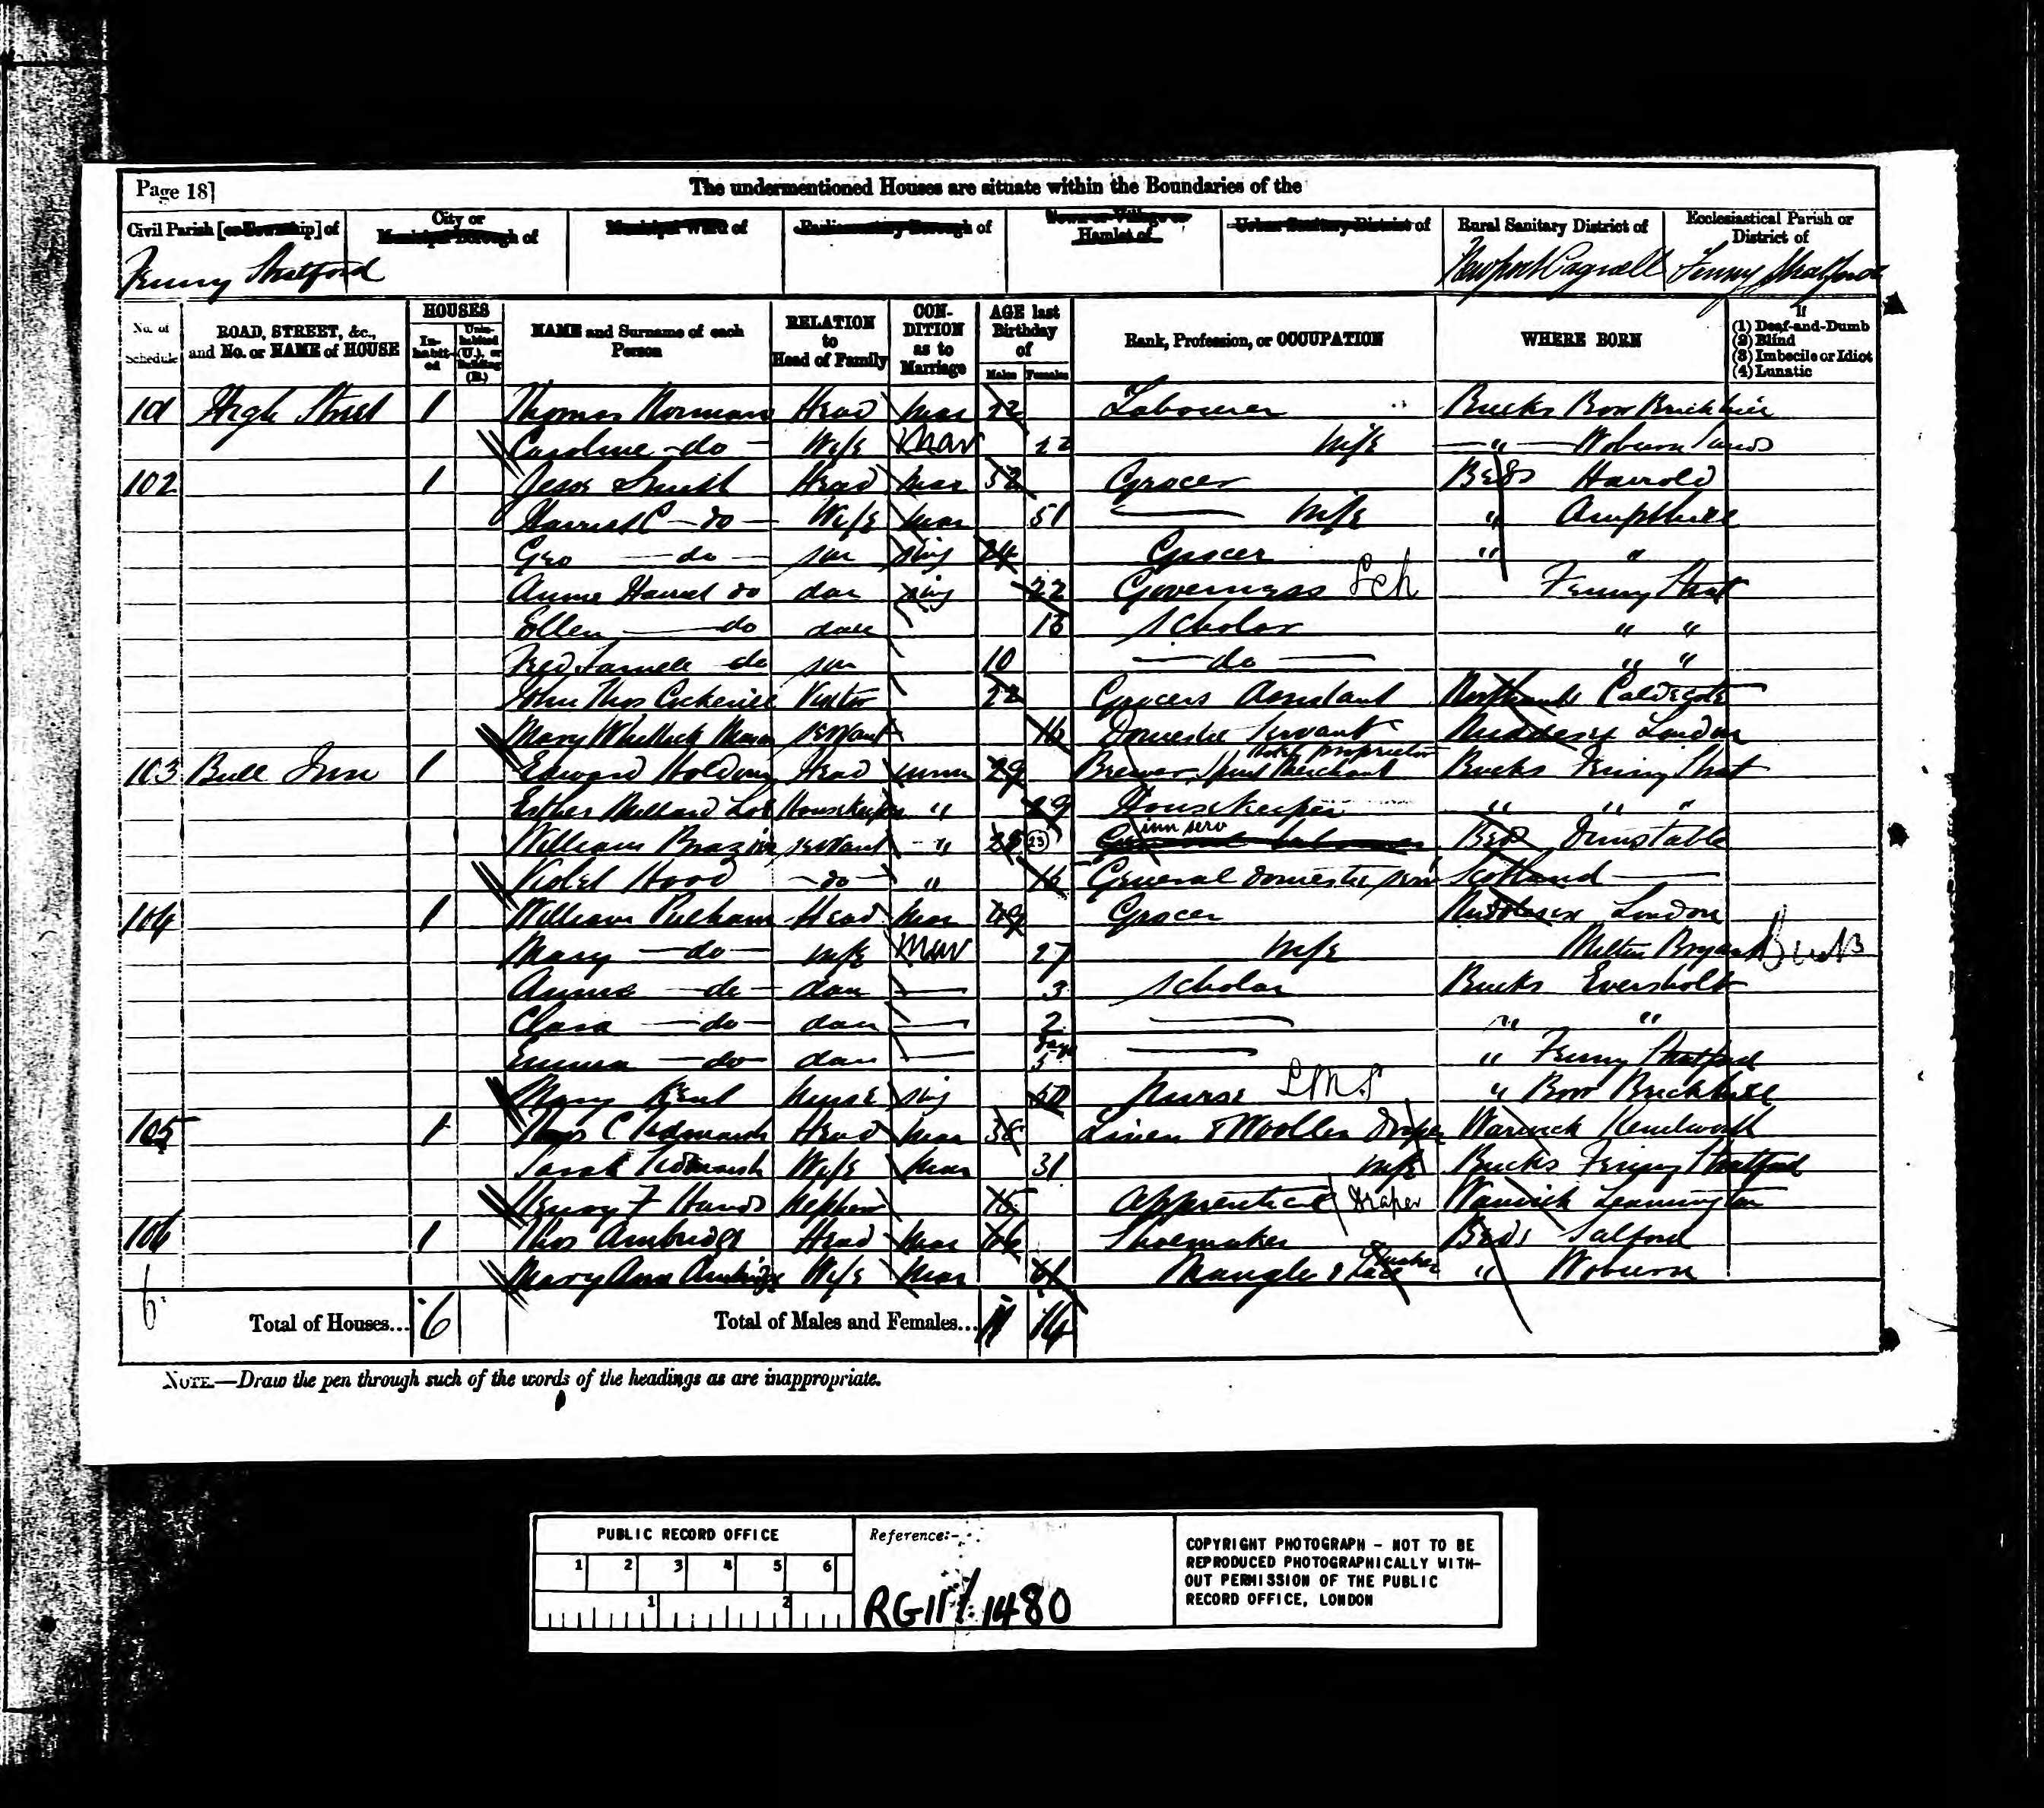 Page 18]
The undermentioned Houses are situate within the Boundaries of the
Civil Parish [or Township] of
City or Municipal Borough of
Municipal Ward of
Parliamentary Borough of
Town or Village or Hamlet of
Urban Sanitary District of
Rural Sanitary District of
Ecclesiastical Parish or District of
Fenny Stratford
Newport Pagnell
Fenny Stratford
No. of Schedule
ROAD, STREET, &c., and No. or NAME of HOUSE
HOUSES
Inhabited
Uninhabited (U.), or Building (B.)
NAME and Surname of each Person
RELATION to Head of Family
CONDITION as to Marriage
AGE last Birthday of
Males
Females
Rank, Profession, or OCCUPATION
WHERE BORN
If
(1) Deaf-and-Dumb
(2) Blind
(3) Imbecile or Idiot
(4) Lunatic
101 High Street 1 Thomas Norman Head Mar 22 Labourer Bucks Bow Brickhill
Caroline do Wife Mar 22 Wife " Woburn Sands
102 1 Jesse Smith Head Mar 52 Grocer Beds Harrold
Harriet C do Wife Mar 51 Wife " Ampthill
Geo do son sing 24 Grocer " "
Annie Harriet do dau sing 22 Governess Sch Fenny Strat
Ellen do dau 13 Scholar " "
Fred do son 10 do " "
John Thos Cockerill Visitor 22 Grocers Assistant Northants Caldecote
Mary Servant 16 Domestic Servant Middlesex London
103 Bull Inn 1 Edward Holding Head unm 29 Brewer, Spirit Merchant Hotel proprietor Bucks Fenny Strat
Esther Millard Housekeeper " 29 Housekeeper " " "
William Brazier servant " 23 inn serv General Labourer Beds Dunstable
Violet Hood do " 16 General Domestic serv Scotland
104 1 William Pulham Head Mar 49 Grocer Middlesex London
Mary do Wife Mar 27 Wife Milton Bryant Bucks
Annie do dau 3 Scholar Bucks Eversholt
Clara do dau 2 " "
Emma do dau days 5 " Fenny Stratford
Mary Kent Nurse sing 50 Nurse S.M.S " Bow Brickhill
105 1 Thos C Tidmarsh Head Mar 38 Linen & Woollen Draper Warwick Kenilworth
Sarah Tidmarsh Wife Mar 31 Wife Bucks Fenny Stratford
Henry F Hands Nephew 15 Apprentice Draper Warwick Leamington
106 1 Thos Ambridge Head Mar 66 Shoemaker Beds Salford
Mary Ann Ambridge Wife Mar 61 Mangle & Lace " Woburn
6
Total of Houses... 6
Total of Males and Females... 11 14
NOTE.—Draw the pen through such of the words of the headings as are inappropriate.
PUBLIC RECORD OFFICE
1 2 3 4 5 6
1 2
Reference:-
RG11/1480
COPYRIGHT PHOTOGRAPH – NOT TO BE
REPRODUCED PHOTOGRAPHICALLY WITH-
OUT PERMISSION OF THE PUBLIC
RECORD OFFICE, LONDON